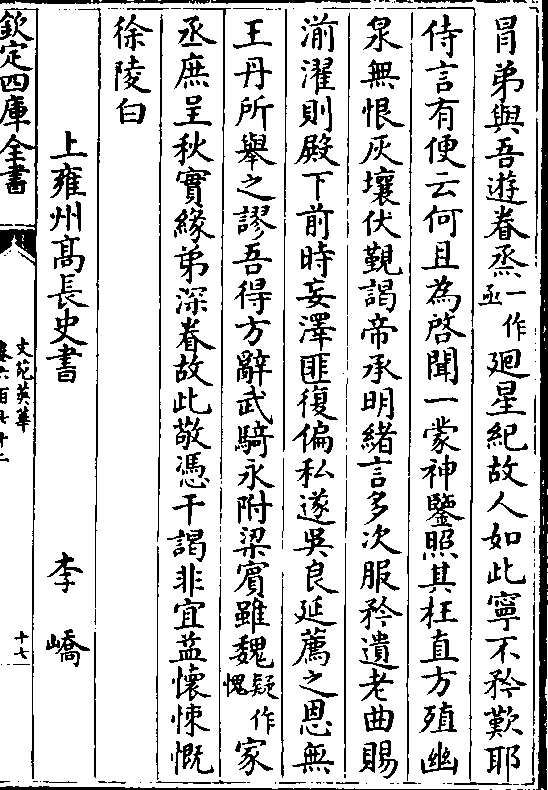 冒弟與吾遊眷烝一作亟廻星紀故人如此寧不矜歎耶
侍言有便云何且為啓聞一蒙神鑒照其枉直方殖幽
泉無恨灰壤伏覲謁帝承明緒言多次服矜遺老曲賜
湔濯則殿下前時妄澤匪復偏私遂吳良延薦之恩無
王丹所舉之謬吾得方辭武騎永附梁賓雖魏疑作愧家
丞庶呈秋實緣弟深眷故此敬憑干謁非宜益懷悚慨
徐陵白
上雍州髙長史書 李嶠
欽定四庫全書
文苑英華
十七